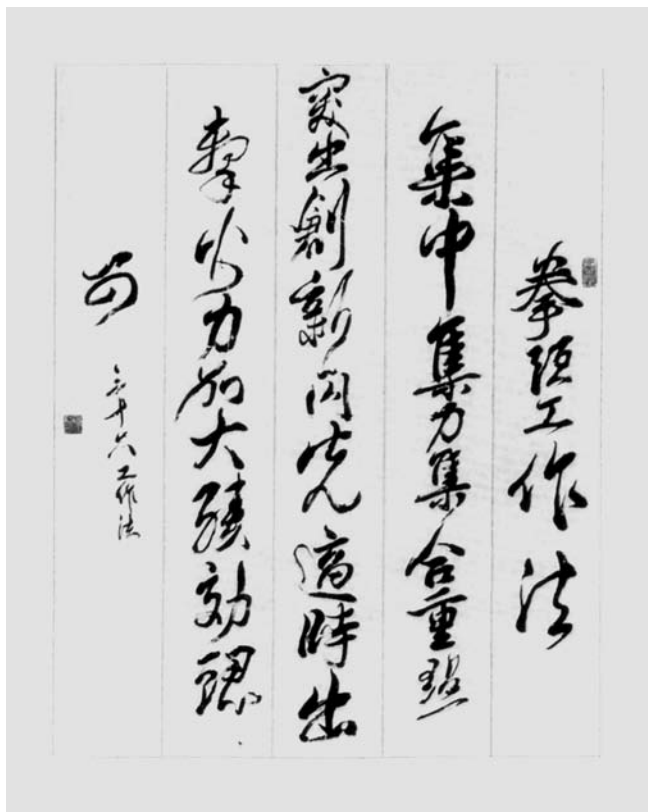 拳頭工作法
集中集力集合重點
突出創新閃光適時出
擊火力加大績効認
可
三十六工作法